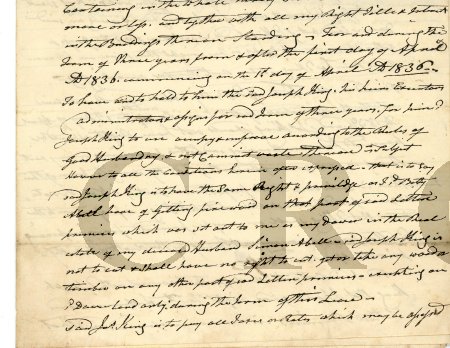 Containing in the whole
more or less. and together with all my Right Title & Interest
in the Buildings thereon Standing - For and during the
Term of three years from & after the first day of April
AD 1836. commencing on the 1st day of April AD 1836 -
To have and to hold to him the said Joseph King, his heirs Executors
administrators & assigns for said term of three years, for said
Joseph King to use occupy & improve according to the Rules of
Good Husbandry, & not Commit waste thereon Subject
However to all the Conditions herein after expressed - that is to say
sd Joseph King is to have the Same Right & priviledge as I sd Betsy
Abell have of Getting fire wood on that part of said
premises which was set out to me as my Dower in the Real
estate of my deceased Husband Simon Abell - sd Joseph King is
not to cut & shall have no right to cut, get or take any wood or
timber on any other part of said premises - excepting on
sd Dower land only, during the term of this Lease -
Said Jos King is to pay all Taxes or Rates which may be assessed
URC